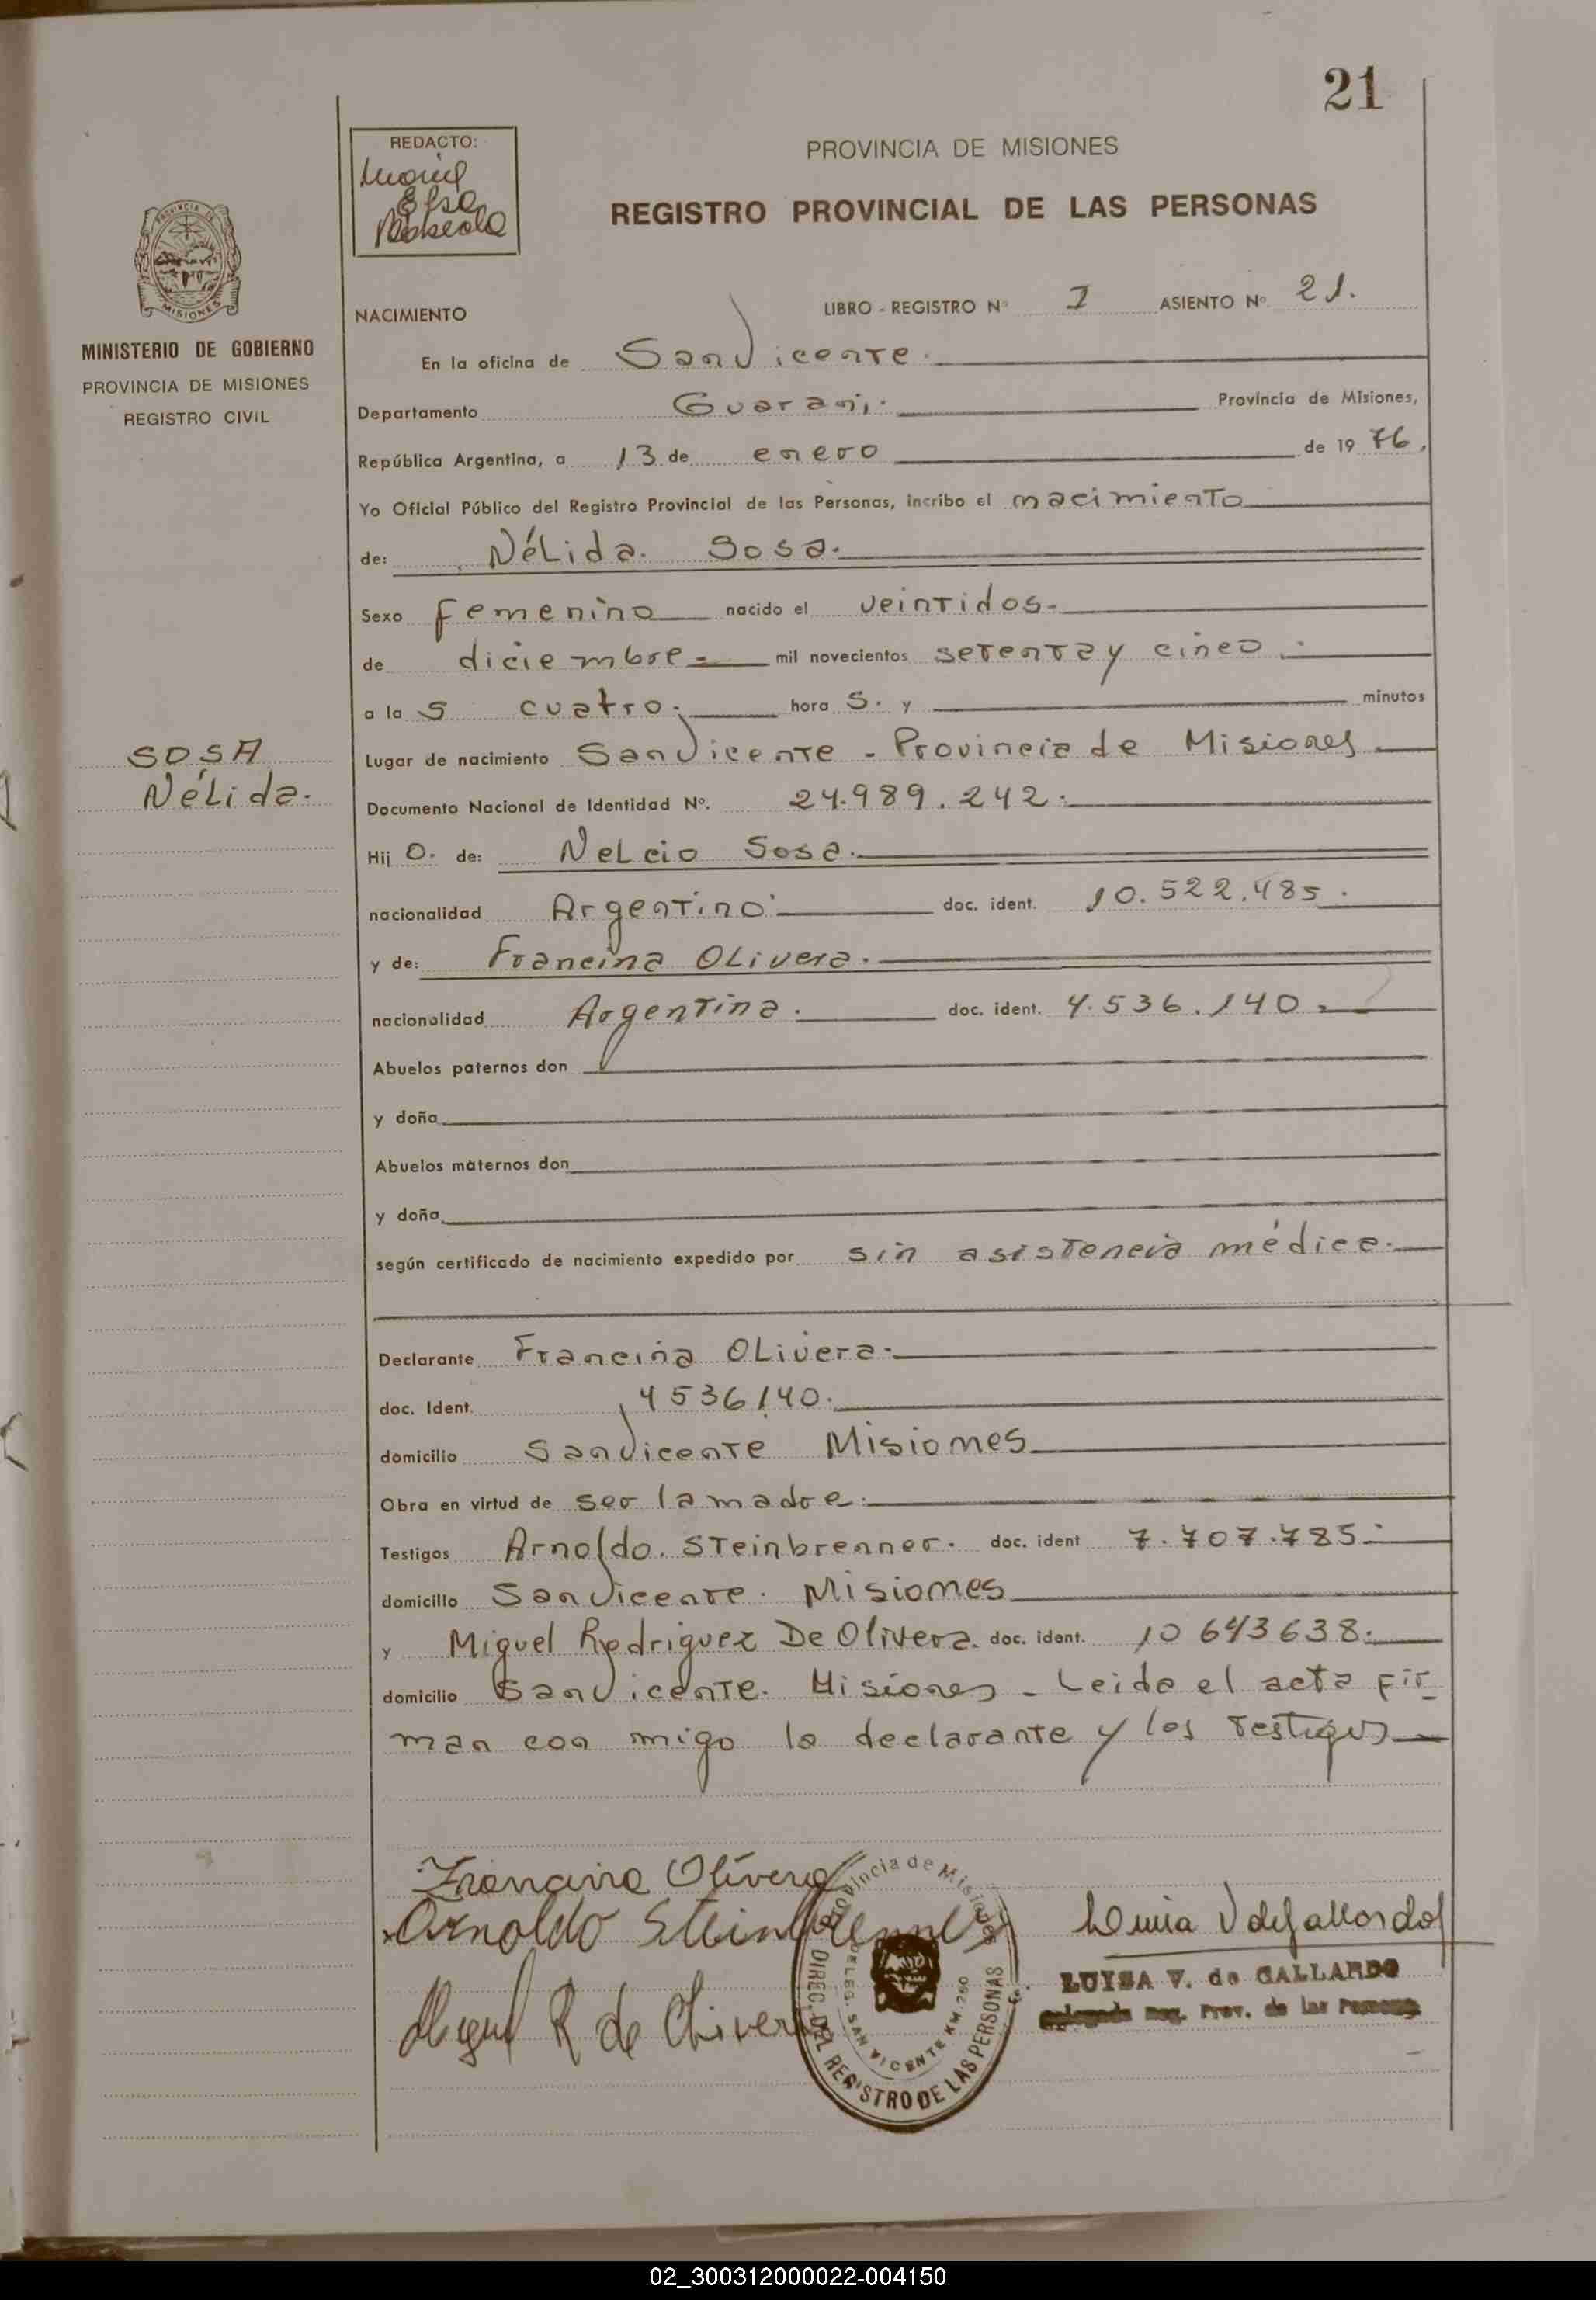 21
REDACTO:
Elsa
PROVINCIA DE MISIONES
REGISTRO PROVINCIAL DE LAS PERSONAS
PROVINCIA DE
MISIONES
MINISTERIO DE GOBIERNO
PROVINCIA DE MISIONES
REGISTRO CIVIL
NACIMIENTO LIBRO - REGISTRO Nº I ASIENTO Nº 21.
En la oficina de San Vicente.
Departamento Guaraní. Provincia de Misiones,
República Argentina, a 13 de enero de 1976,
Yo Oficial Público del Registro Provincial de las Personas, incribo el nacimiento
de: Nélida Sosa.
Sexo femenino nacido el veintidos
de diciembre mil novecientos setenta y cinco.
a las cuatro. horas. y minutos
Lugar de nacimiento San Vicente - Provincia de Misiones
SOSA
Nélida.
Documento Nacional de Identidad Nº. 24.989.242.
Hijo. de: Nelcio Sosa.
nacionalidad Argentino. doc. ident. 10.522.485.
y de: Francina Olivera.
nacionalidad Argentina. doc. ident. 4.536.140
Abuelos paternos don
y doña
Abuelos maternos don
y doña
según certificado de nacimiento expedido por sin asistencia médica.
Declarante Francina Olivera.
doc. Ident. 4536140.
domicilio San Vicente Misiones
Obra en virtud de ser la madre.
Testigos Arnoldo Steinbrenner. doc. ident 7.707.785
domicilio San Vicente. Misiones
y Miguel Rodriguez De Olivera. doc. ident. 10643638.
domicilio San Vicente. Misiones - Leida el acta fir
man con migo la declarante y los testigos
Francina Olivera
Arnoldo Steinbrenner
Miguel R de Olivera
Provincia de Misiones
DIREC. DEL REGISTRO DE LAS PERSONAS
DELEG. SAN VICENTE KM. 260
Luisa V de Gallardo
LUISA V. de GALLARDO
Delegada Reg. Prov. de las Personas
02_300312000022-004150